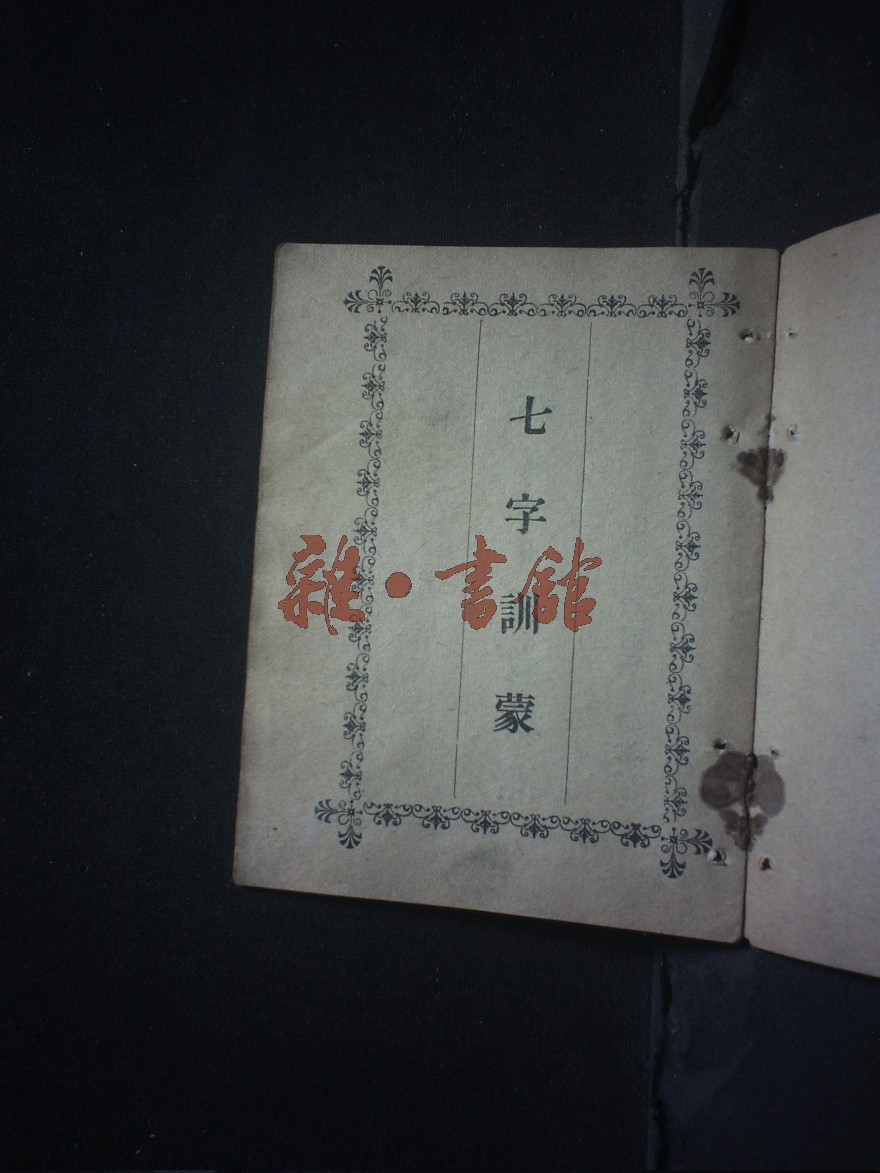 七字訓蒙
雜·書館